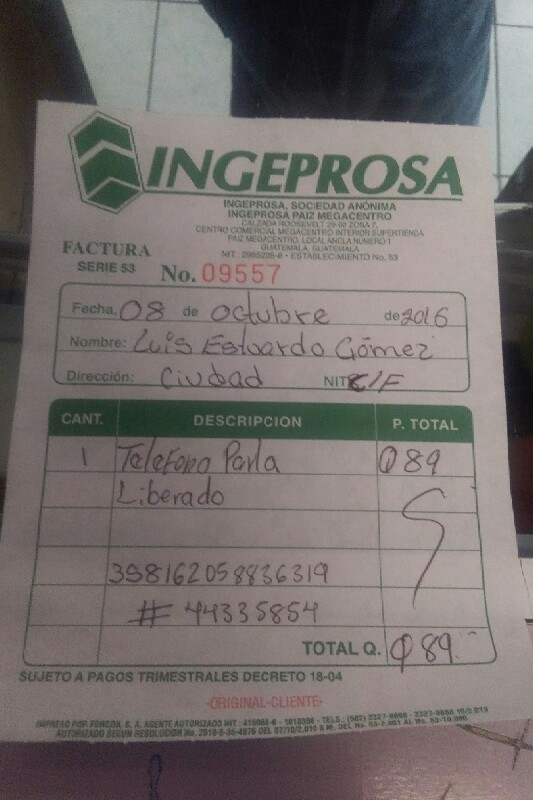 INGEPROSA
INGEPROSA, SOCIEDAD ANÓNIMA
INGEPROSA PAIZ MEGACENTRO
CALZADA ROOSEVELT ZONA 7,
CENTRO COMERCIAL MEGACENTRO INTERIOR SUPERTIENDA
PAIZ MEGACENTRO, LOCAL ANCLA NÚMERO 1
GUATEMALA, GUATEMALA
NIT. • ESTABLECIMIENTO No. 53
FACTURA
SERIE 53 No. 09557
Fecha, 08 de octubre de 2016
Nombre: Luis Estuardo Gómez
Dirección: Ciudad NIT C/F
CANT. DESCRIPCION P. TOTAL
1 Telefono Q 89
Liberado
#44335854
TOTAL Q. Q 89.
SUJETO A PAGOS TRIMESTRALES DECRETO 18-04
-ORIGINAL-CLIENTE-
IMPRESO POR FORCON, S. A. AGENTE AUTORIZADO NIT.
AUTORIZADO SEGUN RESOLUCION No.